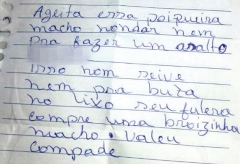 Ageita essa poipueira
macho nondar nem
pra fazer um asalto
Isso nom seive
nem pra buta
no lixo seu fulera
compre uma broizinha
macho. valeu
Compade